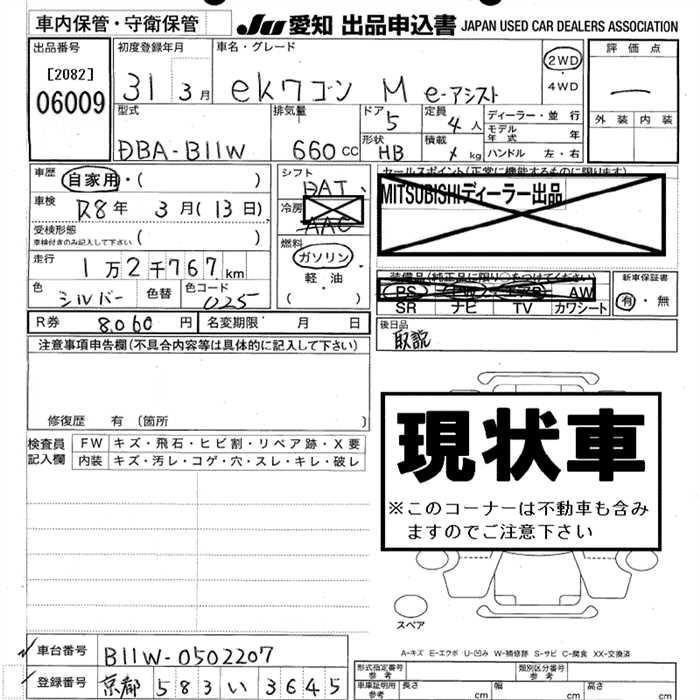 車内保管・守衛保管 JU 愛知 出品申込書 JAPAN USED CAR DEALERS ASSOCIATION
出品番号 初度登録年月 車名・グレード 評価点
[2082] 31 3月 ekワゴン M e-アシスト 2WD・4WD ー
06009
型式 排気量 ドア 5 定員 4人 ディーラー・並行 外装 内装
モデル年式 年
DBA-B11W 660cc 形状 HB 積載 kg ハンドル 左・右
車歴 自家用・( ) シフト DAT セールスポイント(正常に機能するものに限ります)
車検 R8年 3月(13日) 冷房 AAC MITSUBISHIディーラー出品
受検形態 ( )
車検付きのみ記入して下さい
燃料 ガソリン・軽・油 ( )
走行 1万2千767km 装備品(純正品に限り○をつけてください) 新車保証書
色 シルバー 色替 色コード 025 PS AW 有・無
SR ナビ TV カワシート
R券 8,060円 名変期限 月 日 後日品
取説
注意事項申告欄(不具合内容等は具体的に記入して下さい)
修復歴 有(箇所 )
現状車
※このコーナーは不動車も含み
ますのでご注意下さい
検査員記入欄 FW キズ・飛石・ヒビ割・リペア跡・X要
内装 キズ・汚レ・コゲ・穴・スレ・キレ・破レ
スペア
A-キズ E-エクボ U-凹み W-補修跡 S-サビ C-腐食 XX-交換済
車台番号 B11W-0502207
登録番号 京都 583 い 3645
形式指定番号 参考 類別区分番号 参考
車庫証明用 参考 長さ cm 幅 cm 高さ cm